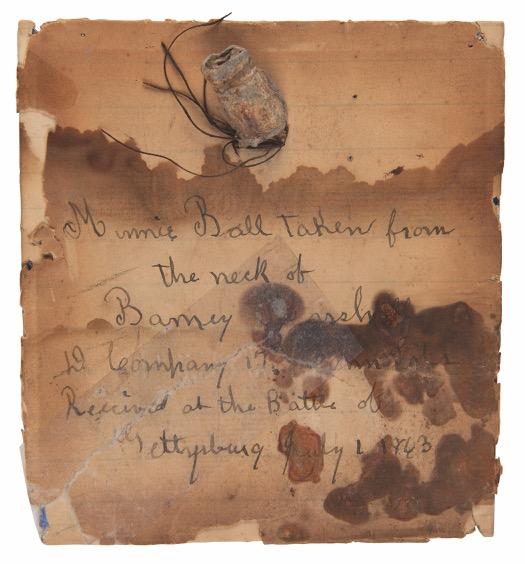 Minnie Ball taken from
the neck of
Barney
D Company 17
Received at the Battle of
Gettysburg July 1 1863